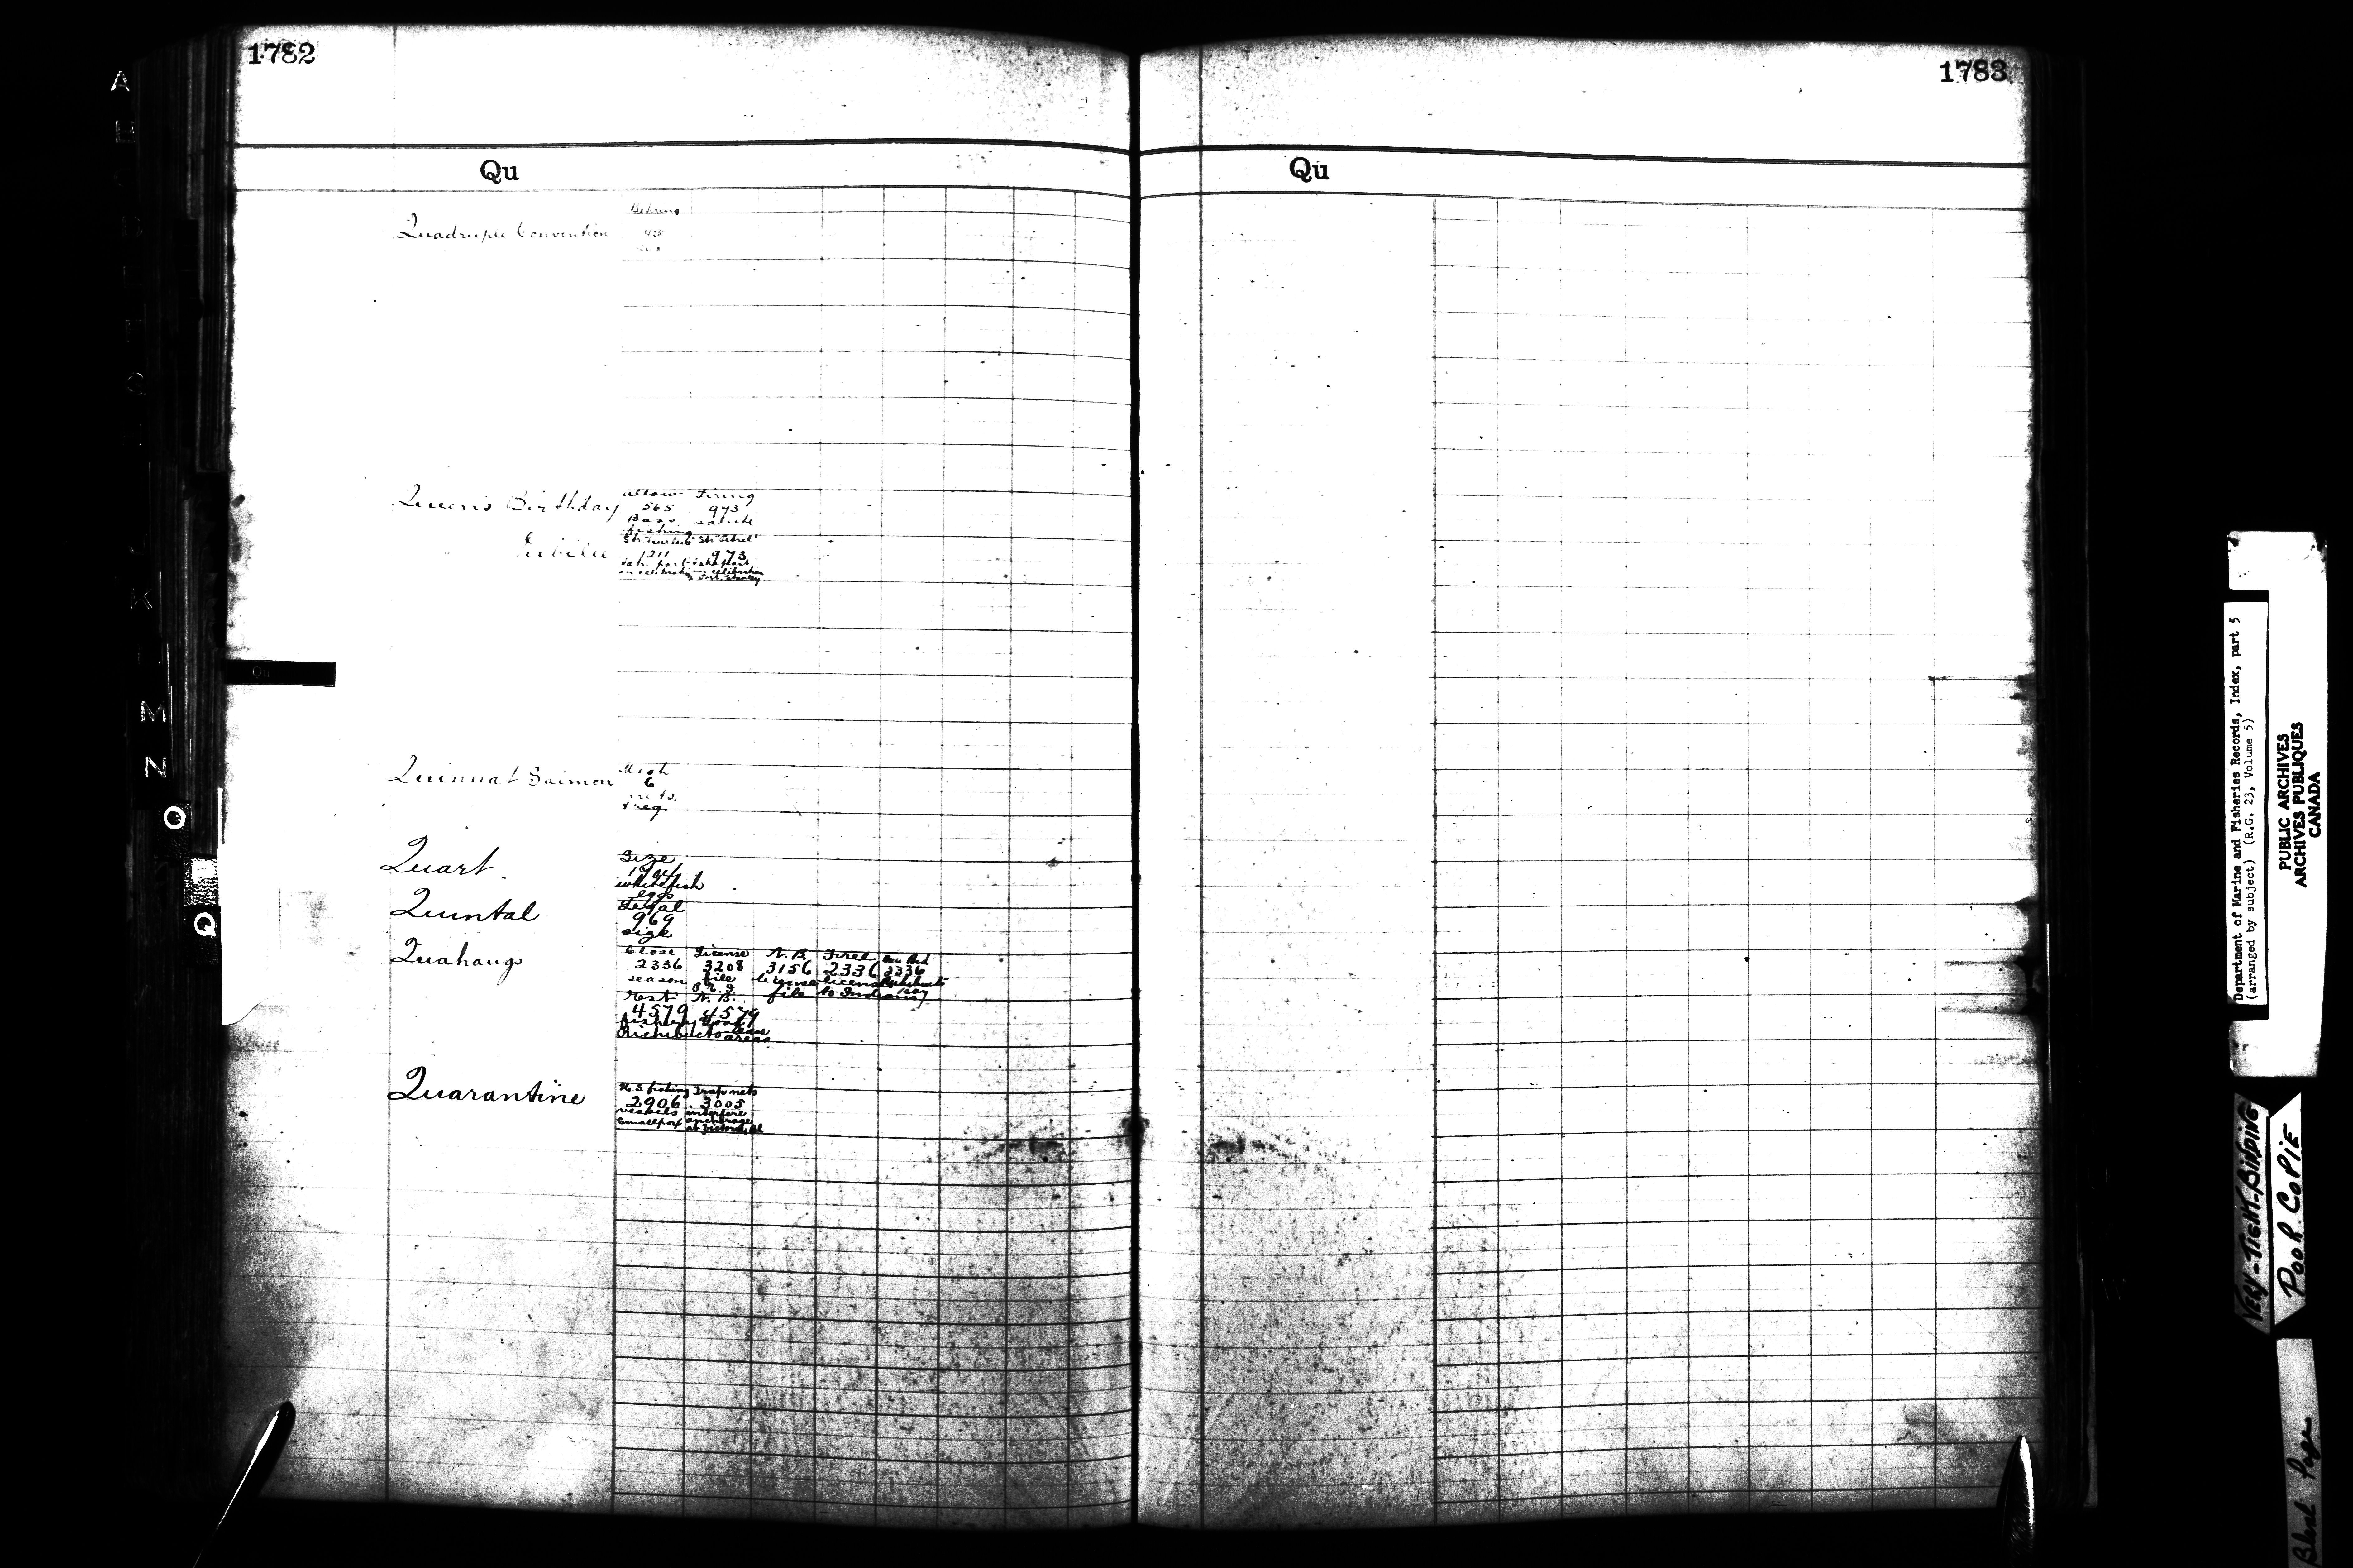 1782
Qu
Quadruple Convention
Behring
428
Queen's Birthday
allow Firing
565 973
Bass salute
fishing
" Jubilee
1211 973
take part take part
in celebration in celebration
Port Stanley
Quinnat Salmon
Mesh
6
nets.
& reg.
Quart.
Size
whitefish
eggs
Quintal
Legal
969
size
Quahaugs
Close License N.B. Free
2336 3208 3156 2336 2336
season file license license
P.E.I. file to Indians Bay
N.B.
4579 4579
Richibucto areas
Quarantine
U.S. fishing Trap nets
2906 3005
vessels interfere
Smallpox anchorage
at Victoria, BC
1783
Qu
A
M
N
O
Q
Department of Marine and Fisheries Records, Index, part 5
(arranged by subject) (R.G. 23, Volume 5)
PUBLIC ARCHIVES
ARCHIVES PUBLIQUES
CANADA
VERY-TIGHT-BINDING
POOR COPIE
Blank Page